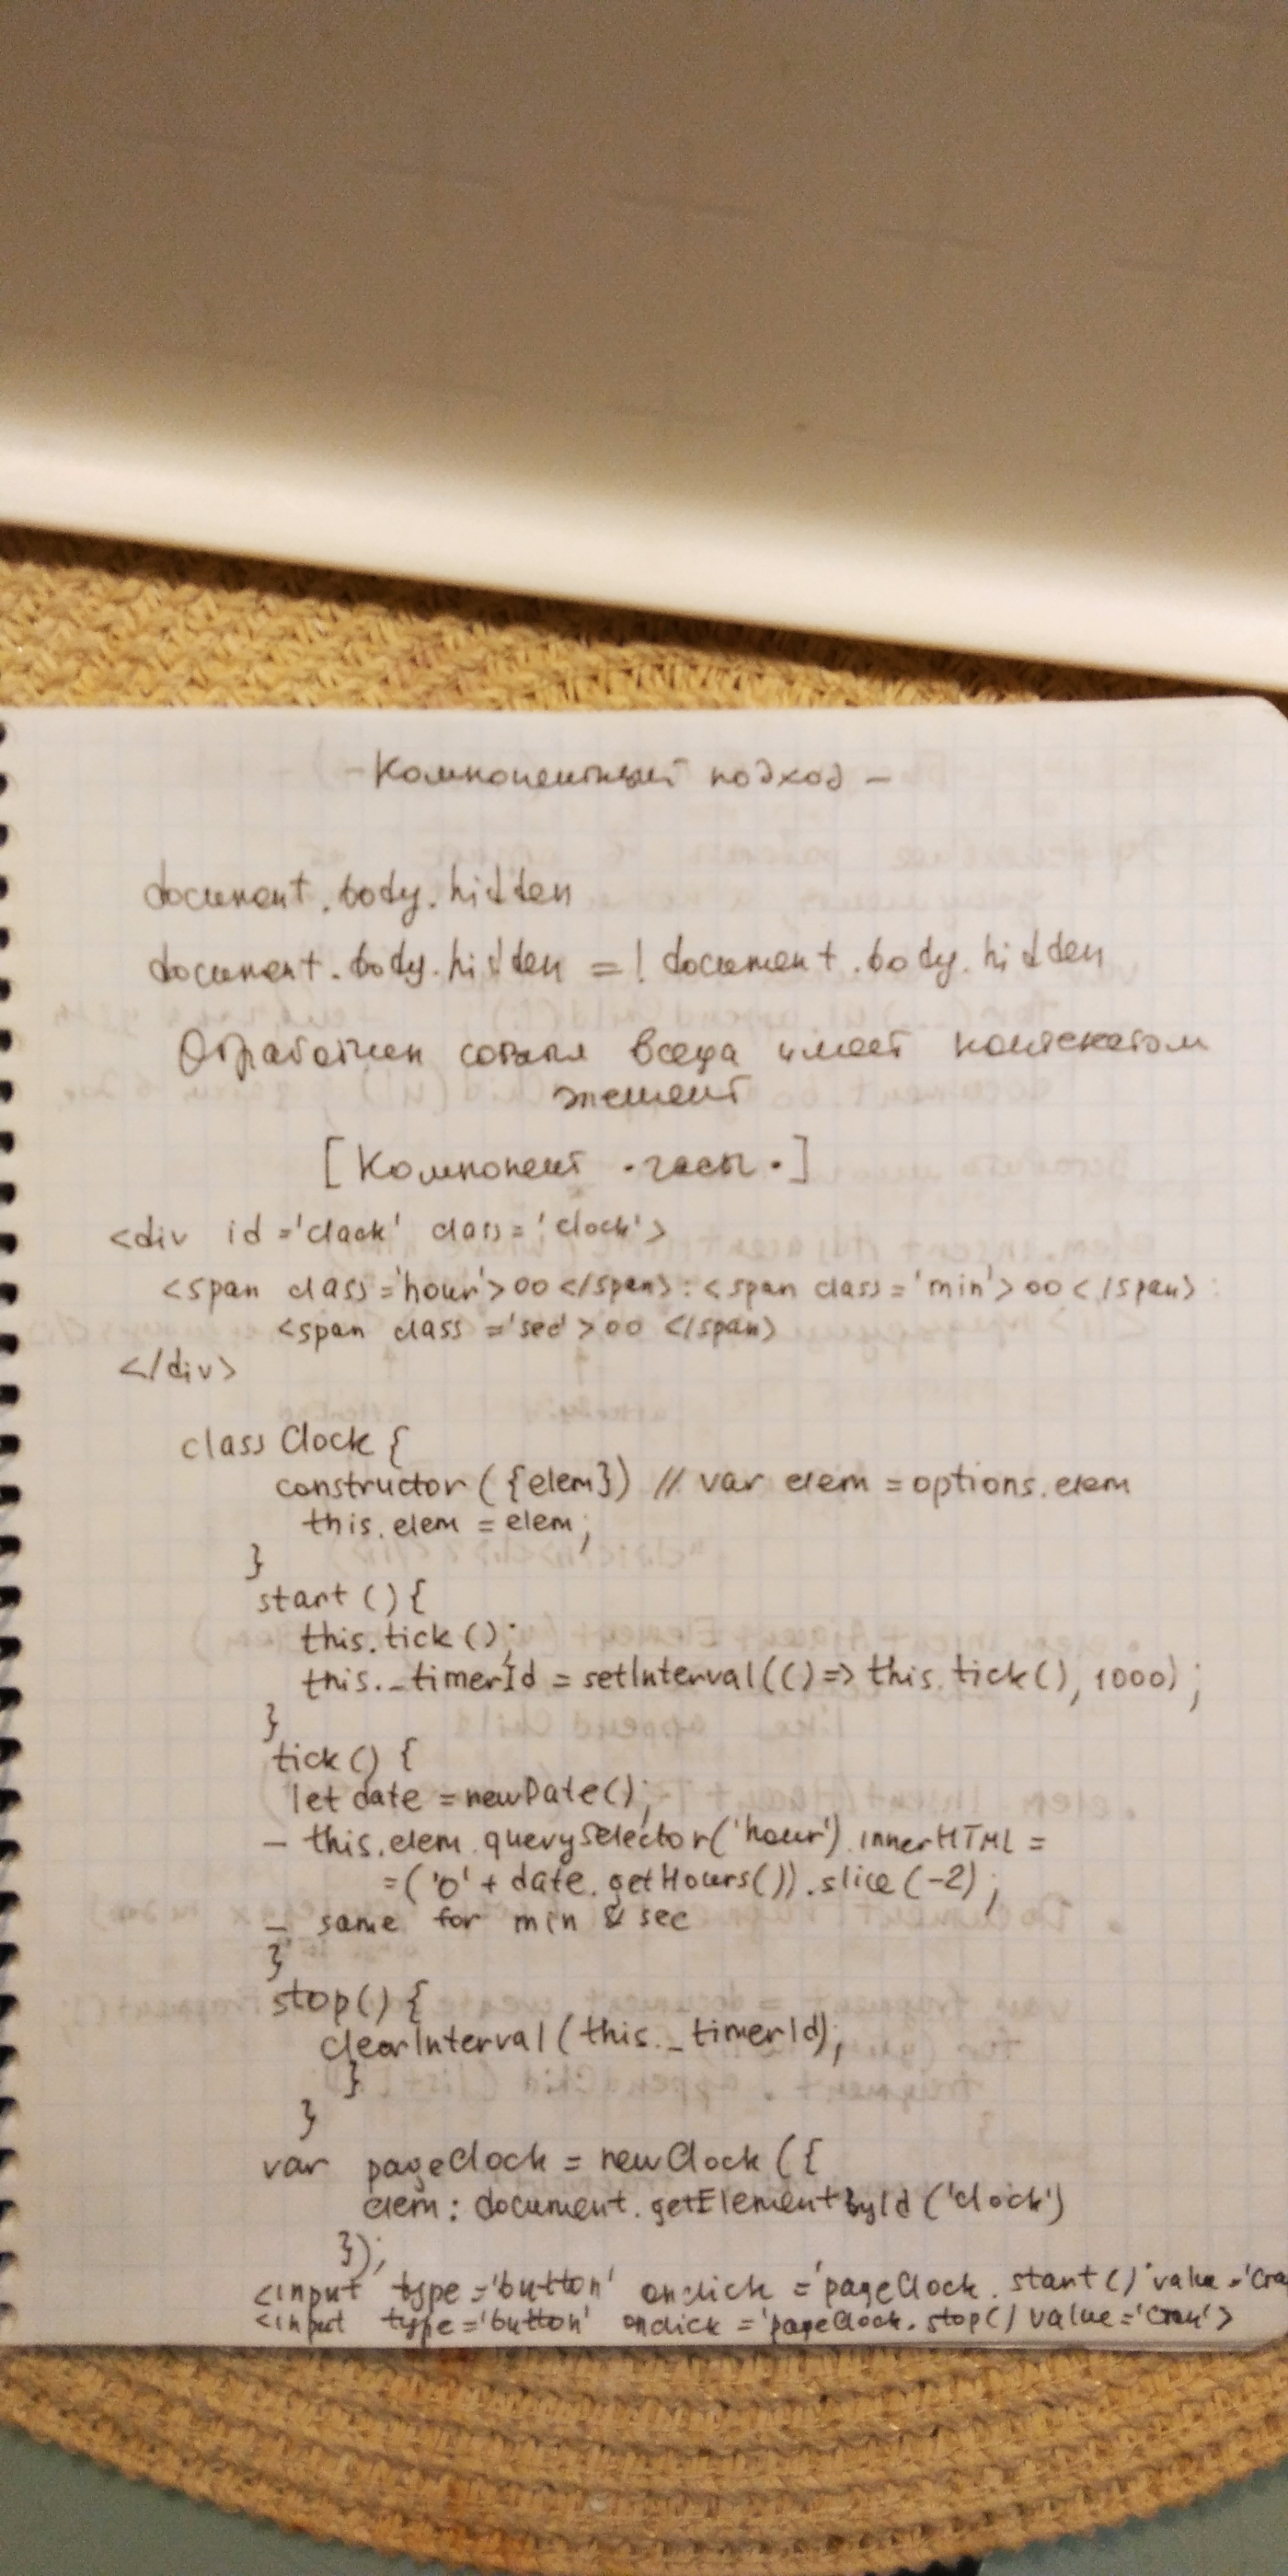 - Компонентный подход -
document.body.hidden
document.body.hidden = ! document.body.hidden
Обработчик события всегда имеет контекстом
элемент
[Компонент "часы"]
<div id='clack' class='clock'>
<span class='hour'>00</span>:<span class='min'>00</span>:
<span class='sec'>00 </span>
</div>
class Clock {
constructor ({elem}) // var elem = options.elem
this.elem = elem;
}
start () {
this.tick ();
this._timerId = setInterval(() => this.tick(), 1000);
}
tick () {
let date = new Date();
- this.elem.querySelector('hour').innerHTML =
= ('0' + date.getHours()).slice(-2);
- same for min & sec
}
stop() {
clearInterval(this._timerId);
}
}
var pageClock = new Clock ({
elem: document.getElementById('clock')
});
<input type='button' onclick='pageClock.start()' value='Ста
<input type='button' onclick='pageClock.stop() value='Стоп'>